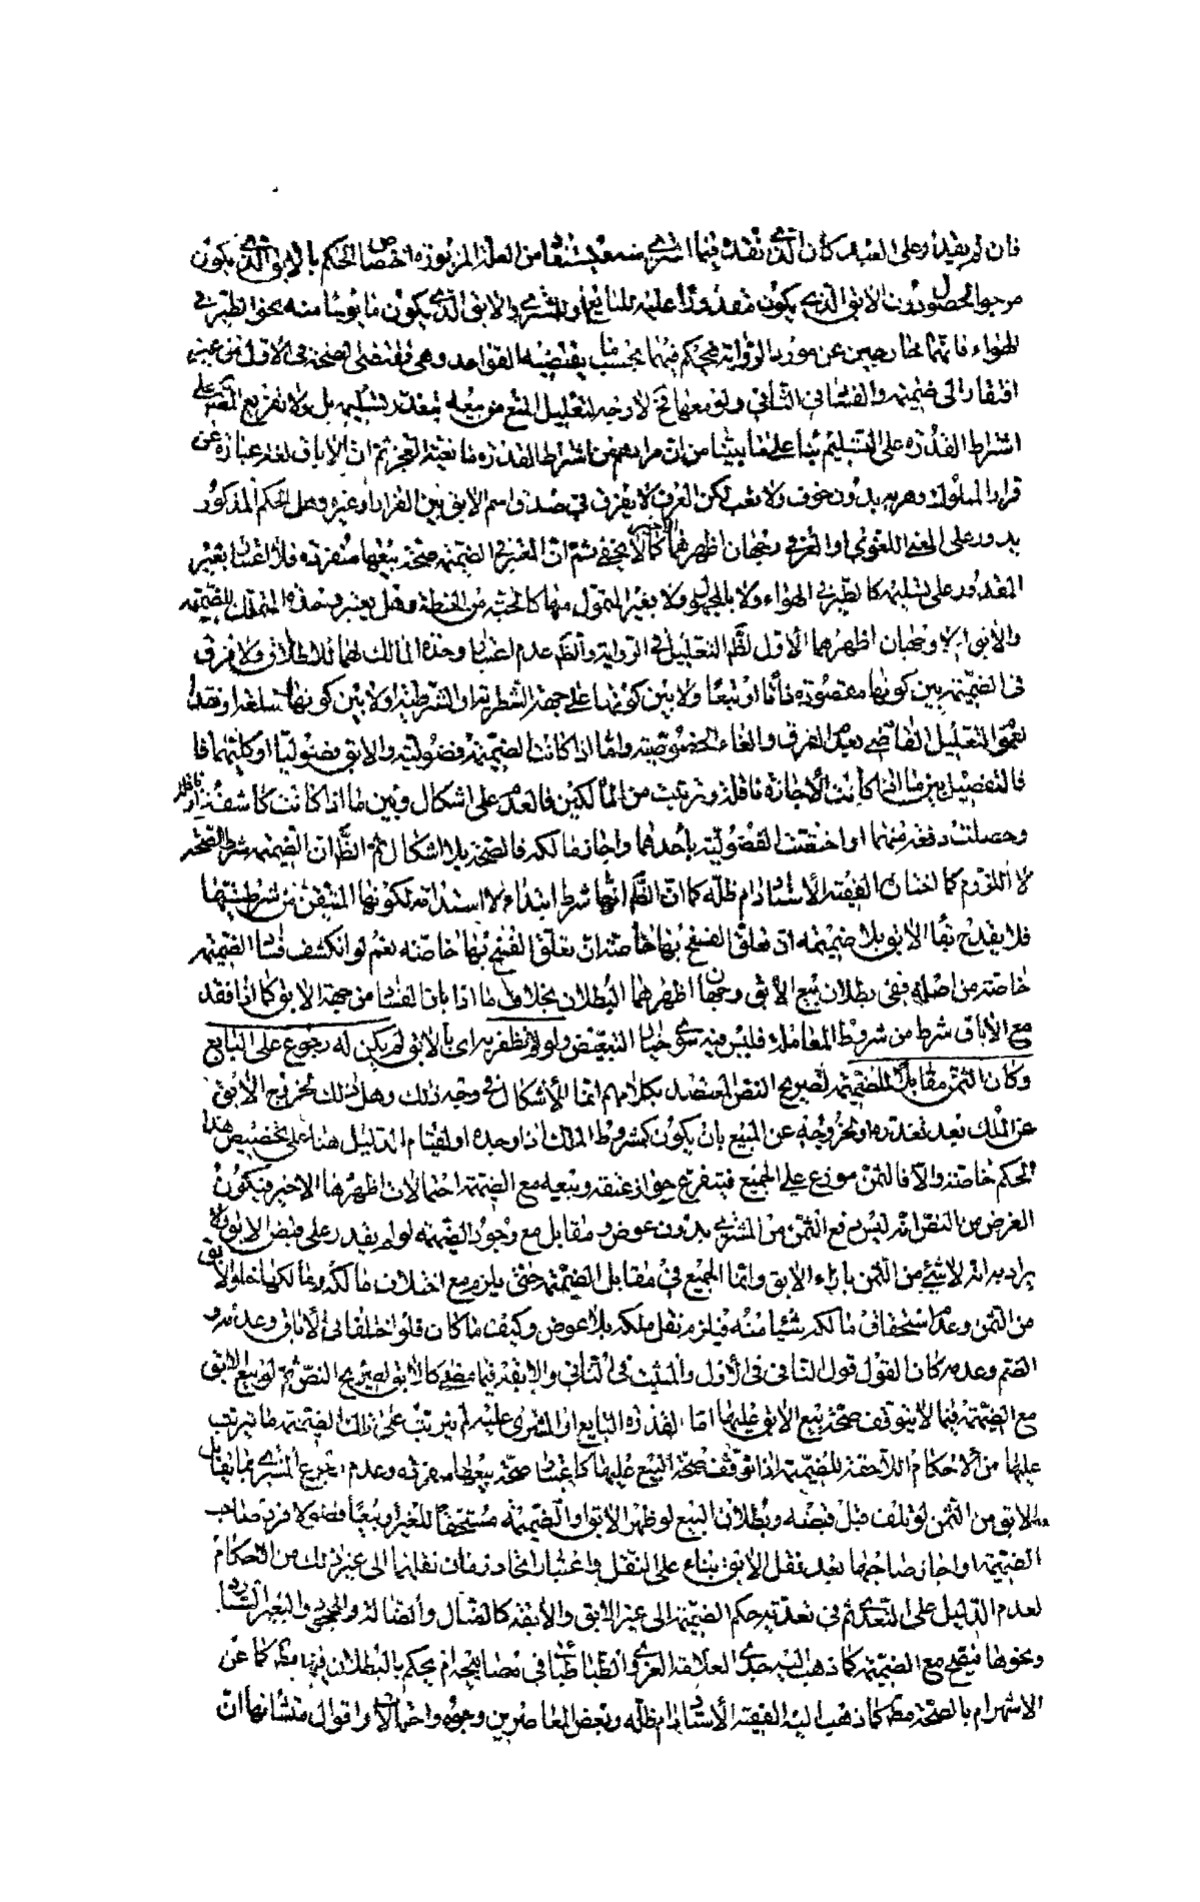 فان لم يقدر على العبد كان الذي نقده فيما اشترى معه يستفاد من العلة المزبورة اختصاص الحكم بالابق الذي يكون
مرجو الحصول دون الابق الذي يكون مقدورا عليه للبايع او للمشتري والابق الذي يكون مايوسا منه بنحو الطير في
الهواء فانهما خارجين عن مورد الرواية فيحكم فيهما بحسب ما يقتضيه القواعد وهي تقتضي الصحة في الاول من غير
افتقار الى ضميمة والفساد في الثاني ولو معها ثم لا وجه لتعليل المنع من بيعه بتعذر تسليمه بل ولا تفريع المنع على
اشتراط القدرة على التسليم بناء على ما بينا من ان مرادهم من اشتراط القدرة مانعية العجز ثم ان الاباق لغة عبارة عن
فرار المملوك وهربه بدون خوف ولا تعب لكن العرف لا يفرق في صدق اسم الابق بين الفرار وغيره وهل الحكم المذكور
يدور على المعنى اللغوي او العرفي وجهان اظهرهما الاخير كما لا يخفى ثم ان المعتبر في الضميمة صحة بيعها منفردة فلا اعتبار بغير
المقدور على تسليمه كالطير في الهواء ولا بالمجهول ولا بغير المتمول منها كالحبة من الحنطة وهل يعتبر وحدة المتملك للضميمة
والابق ام لا وجهان اظهرهما الاول لظ التعليل في الرواية والظ عدم اعتبار وحدة المالك لهما للاطلاق ولا فرق
في الضميمة بين كونها مقصودة ذاتا او تبعا ولا بين كونها على جهة الشطرية او الشرطية ولا بين كونها سلعة او نقدا
لعموم التعليل القاضي بعدم الفرق والغاء الخصوصية واما اذا كانت الضميمة فضولية والابق فضوليا او كليهما فا
فالتفصيل بين ما اذا كانت الاجازة ناقلة وترتبت من المالكين فالعدم على اشكال وبين ما اذا كانت كاشفة او ناقلة
وحصلت دفعة منهما او اختصت الفضولية باحدهما واجاز مالكه فالصحة بلا اشكال ثم الظ ان الضميمة شرط الصحة
لا اللزوم كما اختار الفقيه الاستاد دام ظله كما ان الظ انها شرط ابتداء لا استدامة لكونها المتيقن من شرطيتها
فلا يقدح بقاء الابق بلا ضميمة ان تعلق الفسخ بها خاصة ان تعلق الفسخ بها خاصة نعم لو انكشف فساد الضميمة
خاصة من اصله ففي بطلان بيع الابق وجهان اظهرهما البطلان بخلاف ما اذا بان الفساد من جهة الابق كما اذا فقد
مع الاباق شرط من شروط المعاملة فليس فيه سوى خيار التبعض ولو لم يظفر براى بالابق لم يكن له رجوع على البايع
وكان الثمن مقابلا للضميمة لصريح النص المعتضد بكلامهم انما الاشكال في وجه ذلك وهل ذلك لخروج الابق
عن الملك بعد تعذره او لخروجه عن المبيع بان يكون كشروط الملك اذا وجده او لقيام الدليل هنا على تخصيص هذا
الحكم خاصة والا فالثمن موزع على الجميع فيتفرع جواز عتقه وبيعه مع الضميمة احتمالات اظهرها الاخير فيكون
الغرض من النص انه ليس دفع الثمن من المشتري بدون عوض ومقابل مع وجود الضميمة لو لم يقدر على قبض الابق لا
يراد به انه لا شيء من الثمن بازاء الابق وانما الجميع في مقابل الضميمة حتى يلزم مع اختلاف مالكه ومالكها خلو الابق
من الثمن وعدم استحقاق مالكه شيئا منه فيلزم نقل ملكه بلا عوض وكيف ما كان فلو اختلفا في الاباق وعدمه و
الضم وعدمه كان القول قول النافي في الاول والمثبت في الثاني والابقة فيما مضى كالابق لصريح النص ثم لو بيع الابق
مع الضميمة فيما لا يتوقف صحة بيع الابق عليها اما لقدرة البايع او المشتري عليه لم يترتب على ذلك الضميمة ما يترتب
عليها من الاحكام اللاحقة للضميمة اذا توقفت صحة البيع عليها كاعتبار صحة بيعها منفردة وعدم رجوع المشتري بما يقابل
الابق من الثمن لو تلف قبل قبضه وبطلان البيع لو ظهر الابق او الضميمة مستحقا للغير وبيعا فضولا فرد صاحب
الضميمة او اجاز صاحبها بعد عتق الابق بناء على النقل واعتبار اتحاد زمان نقلهما الى غير ذلك من الاحكام
لعدم الدليل على التعدي ثم في تعدية حكم الضميمة الى غير الابق والابقة كالضال والضالة والمجحود والبعير الشارد
ونحوها فيصح مع الضميمة كما ذهب اليه جدي العلامة العزي والطباطبائي في مصابيحه ام يحكم بالبطلان فيها مط كما عن
الاشهر ام بالصحة مط كما ذهب اليه الفقيه الاستاد دام ظله وبعض المعاصرين وجوه واحتمالات او اقوال منشأها ان